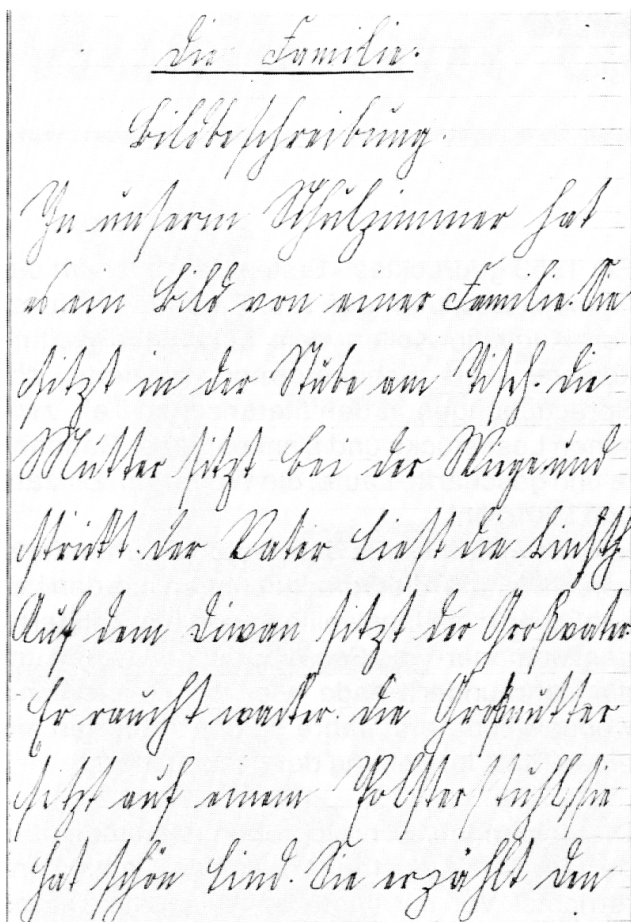 Die Familie.
Bildbeschreibung.
In unserm Schulzimmer hat
es ein Bild von einer Familie. Sie
sitzt in der Stube am Tisch. Die
Mutter sitzt bei der Wiege und
strickt. Der Vater liest die
Auf dem Diwan sitzt der Großvater
Er raucht wacker. Die Großmutter
sitzt auf einem Polsterstuhl sie
hat schön lind. Sie erzählt den